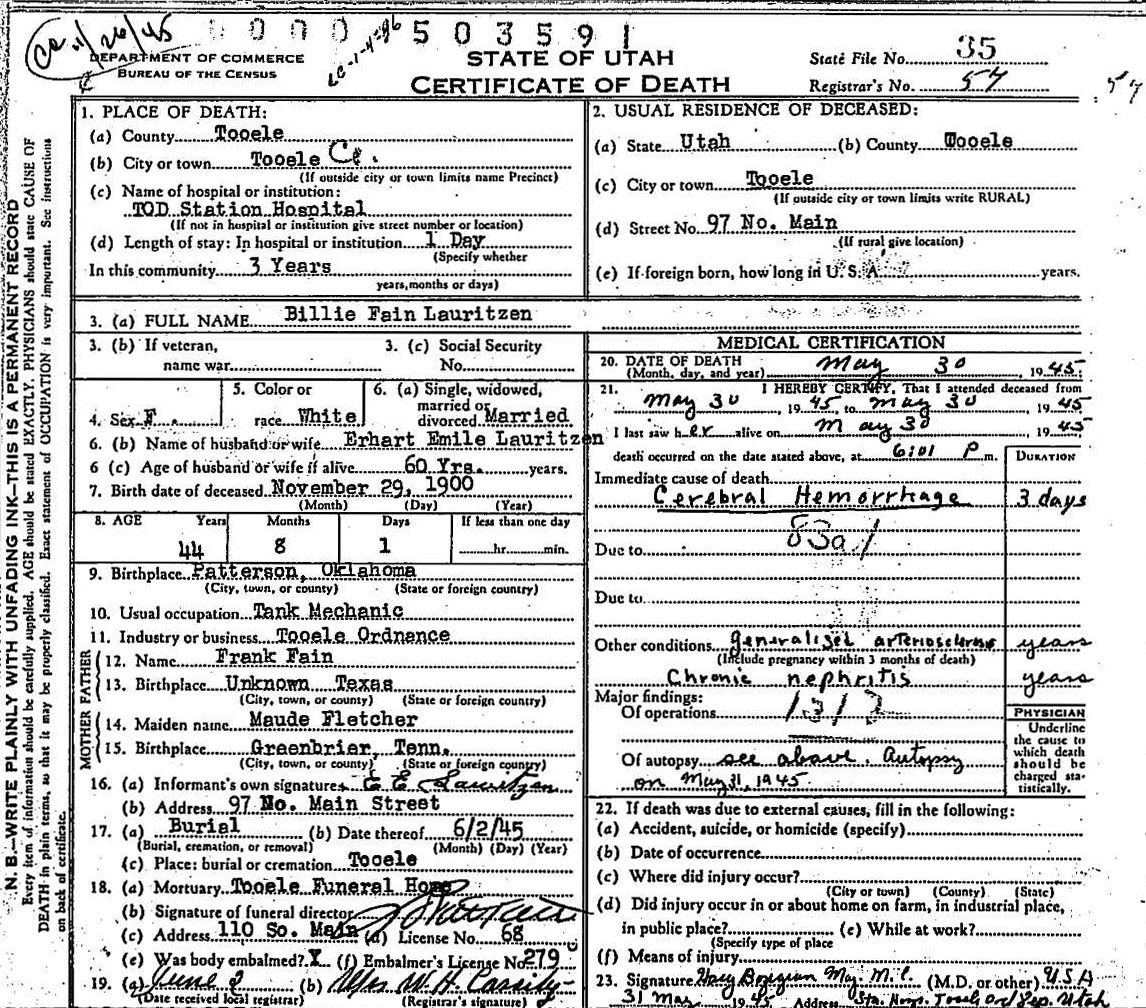 Ce 1/26/45
0000 503591
DEPARTMENT OF COMMERCE
BUREAU OF THE CENSUS
STATE OF UTAH
CERTIFICATE OF DEATH
State File No. 35
Registrar's No. 57
57
N. B.—WRITE PLAINLY WITH UNFADING INK—THIS IS A PERMANENT RECORD
Every item of information should be carefully supplied. AGE should be stated EXACTLY. PHYSICIANS should state CAUSE OF
DEATH in plain terms, so that it may be properly classified. Exact statement of OCCUPATION is very important. See instructions
on back of certificate.
1. PLACE OF DEATH:
(a) County Tooele
(b) City or town Tooele
(If outside city or town limits name Precinct)
(c) Name of hospital or institution:
TOD Station Hospital
(If not in hospital or institution give street number or location)
(d) Length of stay: In hospital or institution 1 Day
(Specify whether
In this community 3 Years
years, months or days)
2. USUAL RESIDENCE OF DECEASED:
(a) State Utah (b) County Tooele
(c) City or town Tooele
(If outside city or town limits write RURAL)
(d) Street No. 97 No. Main
(If rural give location)
(e) If foreign born, how long in U. S. A. years.
3. (a) FULL NAME Billie Fain Lauritzen
3. (b) If veteran,
name war
3. (c) Social Security
No.
4. Sex F.
5. Color or
race White
6. (a) Single, widowed,
married or
divorced Married
6. (b) Name of husband or wife Erhart Emile Lauritzen
6 (c) Age of husband or wife if alive 60 Yrs. years.
7. Birth date of deceased November 29, 1900
(Month) (Day) (Year)
8. AGE Years Months Days If less than one day
44 8 1 hr. min.
9. Birthplace Patterson, Oklahoma
(City, town, or county) (State or foreign country)
10. Usual occupation Tank Mechanic
11. Industry or business Tooele Ordnance
FATHER
12. Name Frank Fain
13. Birthplace Unknown Texas
(City, town, or county) (State or foreign country)
MOTHER
14. Maiden name Maude Fletcher
15. Birthplace Greenbrier, Tenn.
(City, town, or county) (State or foreign country)
16. (a) Informant's own signature E E Lauritzen
(b) Address 97 No. Main Street
17. (a) Burial (b) Date thereof 6/2/45
(Burial, cremation, or removal) (Month) (Day) (Year)
(c) Place: burial or cremation Tooele
18. (a) Mortuary Tooele Funeral Home
(b) Signature of funeral director
(c) Address 110 So. Main (d) License No. 68
(e) Was body embalmed? X (f) Embalmer's License No. 279
19. (a) June 2 (b) Mrs W. H. Cassity
(Date received local registrar) (Registrar's signature)
MEDICAL CERTIFICATION
20. DATE OF DEATH
(Month, day, and year) May 30 1945;
21. I HEREBY CERTIFY, That I attended deceased from
May 30, 1945, to May 30 1945
I last saw her alive on May 30 1945
death occurred on the date stated above, at 6:01 P m.
DURATION
Immediate cause of death
Cerebral Hemorrhage 3 days
83a1
Due to
Due to
Other conditions generalized arteriosclerosis years
(Include pregnancy within 3 months of death)
Chronic nephritis years
Major findings:
Of operations
Of autopsy see above. Autopsy
on May 31, 1945
PHYSICIAN
Underline
the cause to
which death
should be
charged sta-
tistically.
22. If death was due to external causes, fill in the following:
(a) Accident, suicide, or homicide (specify)
(b) Date of occurrence
(c) Where did injury occur?
(City or town) (County) (State)
(d) Did injury occur in or about home on farm, in industrial place,
in public place? (e) While at work?
(Specify type of place
(f) Means of injury
23. Signature Maj M.C. (M.D. or other) USA
31 May 1945 Address Sta. Hosp. Utah